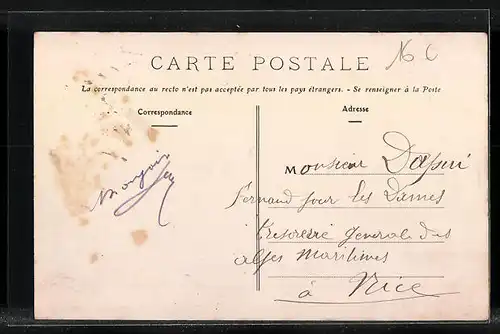 N C
CARTE POSTALE
La correspondance au recto n'est pas acceptée par tous les pays étrangers. - Se renseigner à la Poste
Correspondance
Adresse
Monsieur
Fernand pour les Dames
Tresorerie Generale des
alpes Maritimes
à Nice